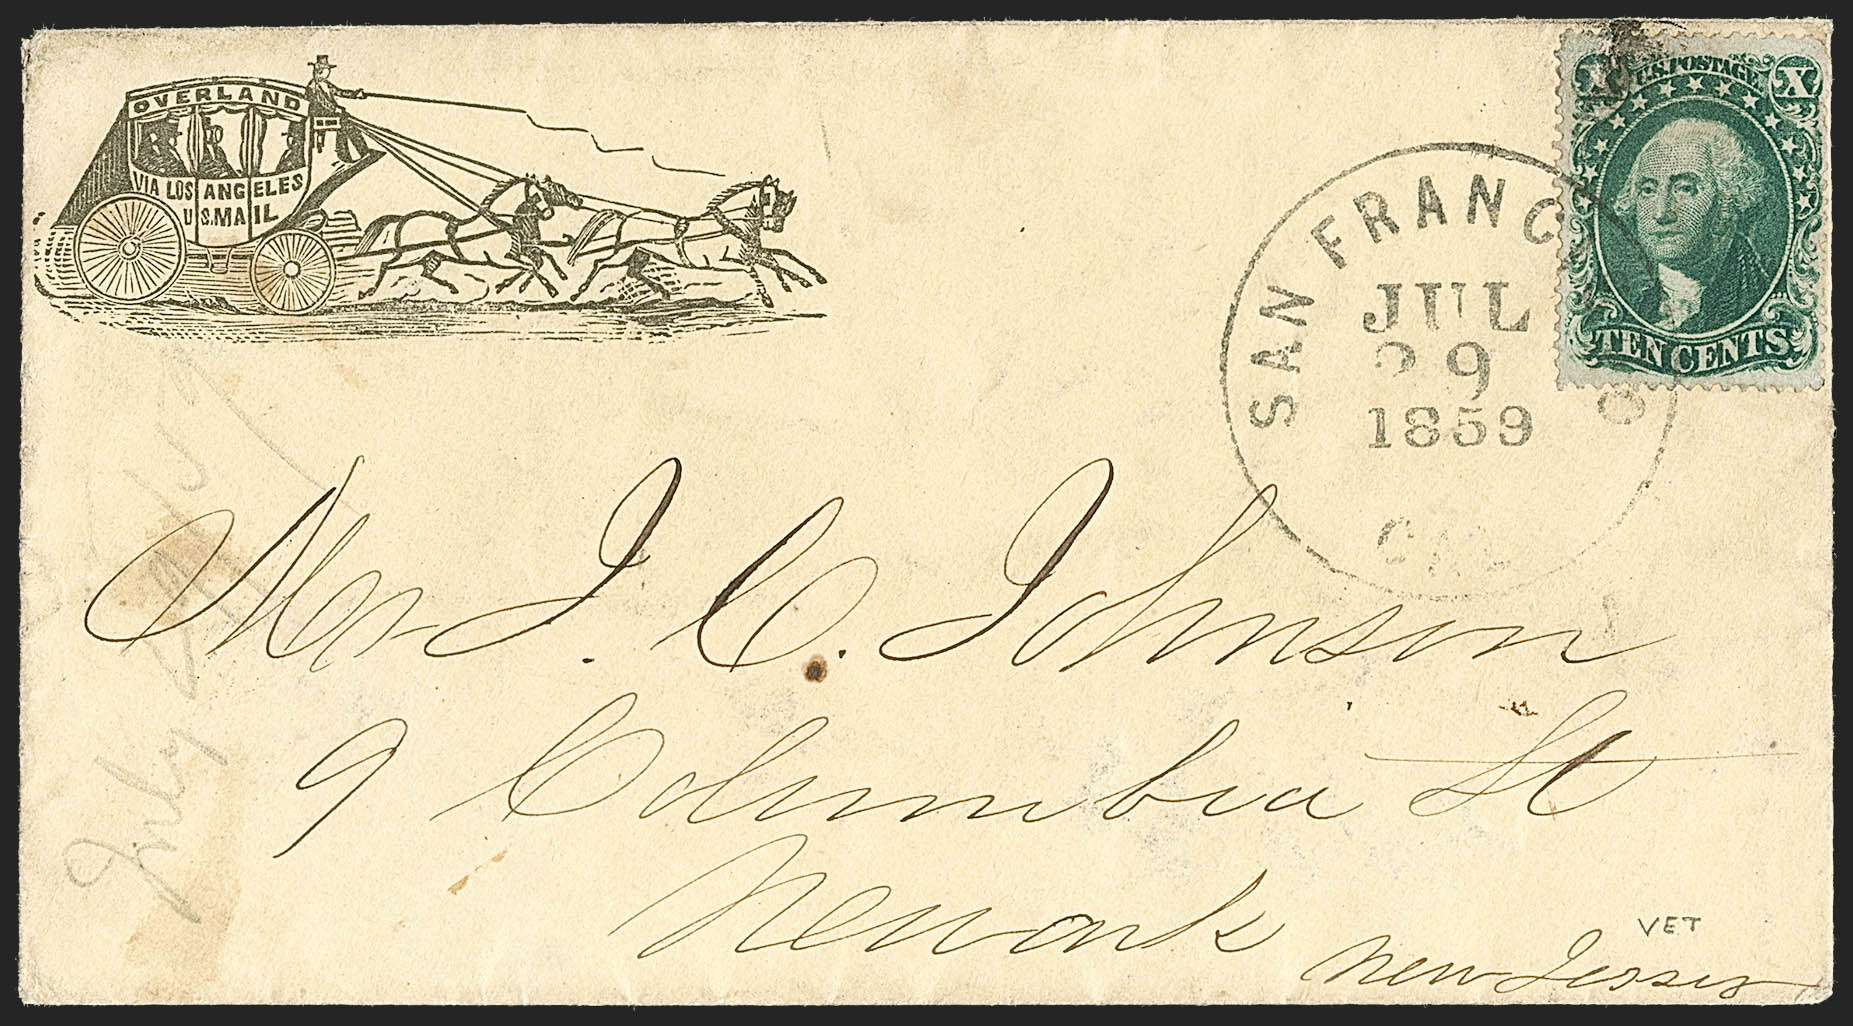 OVERLAND
VIA LOS ANGELES
U.S. MAIL
U.S. POSTAGE
X X
TEN CENTS
SAN FRANCISCO
JUL
29
1859
CAL
Mrs J. C. Johnson
9 Columbia St
Newark
New Jersey
VET
July